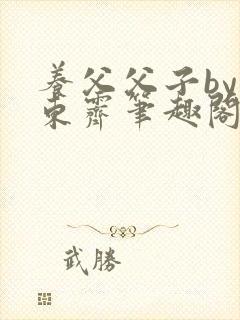 養父父子by
東霽筆趣閣
武勝